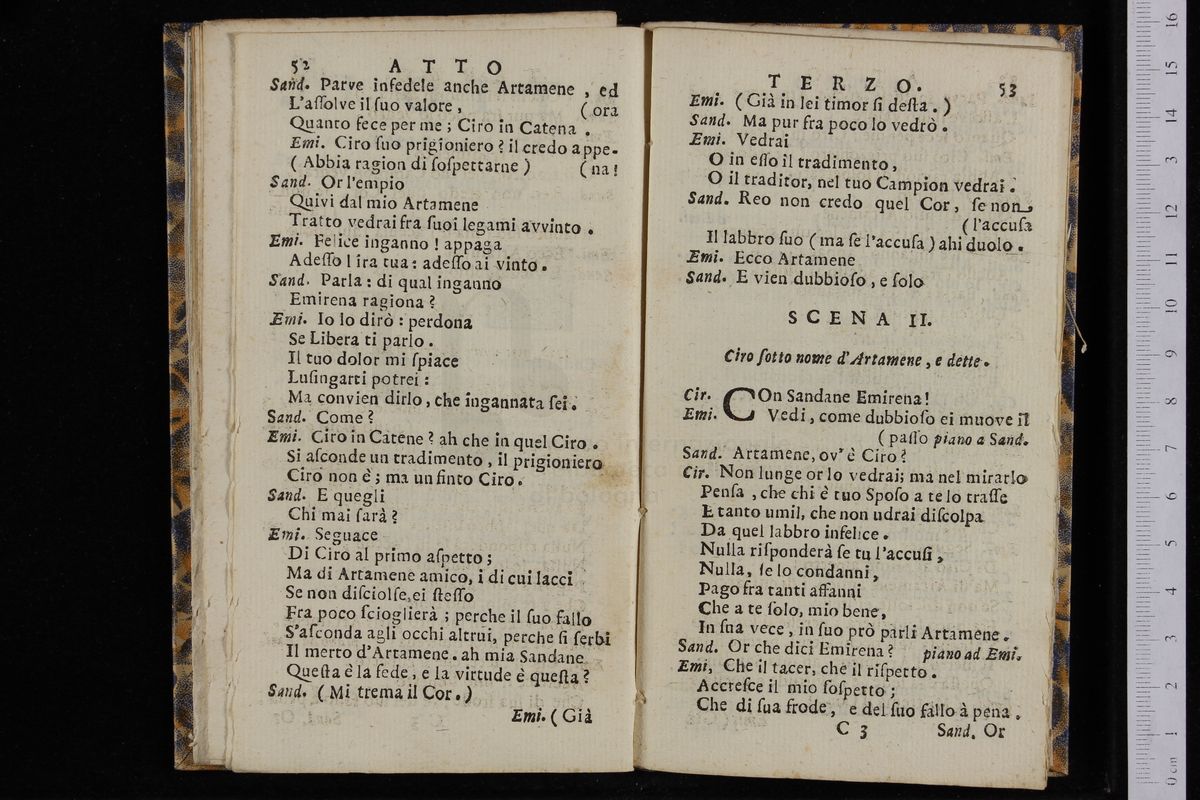 52 ATTO
Sand. Parve infedele anche Artamene, ed
L'aſſolve il ſuo valore, (ora
Quanto fece per me; Ciro in Catena.
Emi. Ciro ſuo prigioniero? il credo appe-
(Abbia ragion di ſoſpettarne) (na!
Sand. Or l'empio
Quivi dal mio Artamene
Tratto vedrai fra ſuoi legami avvinto.
Emi. Felice inganno! appaga
Adeſſo l ira tua: adeſſo ai vinto.
Sand. Parla: di qual inganno
Emirena ragiona?
Emi. Io lo dirò: perdona
Se Libera ti parlo.
Il tuo dolor mi ſpiace
Luſingarti potrei:
Ma convien dirlo, che ingannata ſei.
Sand. Come?
Emi. Ciro in Catene? ah che in quel Ciro.
Si aſconde un tradimento, il prigioniero
Ciro non è; ma un finto Ciro.
Sand. E quegli
Chi mai ſarà?
Emi. Seguace
Di Ciro al primo aſpetto;
Ma di Artamene amico, i di cui lacci
Se non diſciolſe, ei ſteſſo
Fra poco ſcioglierà; perche il ſuo fallo
S'aſconda agli occhi altrui, perche ſi ſerbi
Il merto d'Artamene. ah mia Sandane
Queſta è la fede, e la virtude è queſta?
Sand. (Mi trema il Cor.)
Emi. (Già
TERZO. 53
Emi. (Già in lei timor ſi deſta.)
Sand. Ma pur fra poco lo vedrò.
Emi. Vedrai
O in eſſo il tradimento,
O il traditor, nel tuo Campion vedrai.
Sand. Reo non credo quel Cor, ſe non
(l'accuſa
Il labbro ſuo (ma ſe l'accuſa) ahi duolo.
Emi. Ecco Artamene
Sand. E vien dubbioſo, e ſolo
SCENA II.
Ciro ſotto nome d'Artamene, e dette.
Cir. COn Sandane Emirena!
Emi. Vedi, come dubbioſo ei muove il
(paſſo piano a Sand.
Sand. Artamene, ov' è Ciro?
Cir. Non lunge or lo vedrai; ma nel mirarlo
Penſa, che chi è tuo Spoſo a te lo traſſe
E tanto umil, che non udrai diſcolpa
Da quel labbro infelice.
Nulla riſponderà ſe tu l'accuſi,
Nulla, ſe lo condanni,
Pago fra tanti affanni
Che a te ſolo, mio bene,
In ſua vece, in ſuo prò parli Artamene.
Sand. Or che dici Emirena? piano ad Emi.
Emi, Che il tacer, che il riſpetto.
Accreſce il mio ſoſpetto;
Che di ſua frode, e del ſuo fallo à pena.
C 3 Sand. Or
0 cm 1 2 3 4 5 6 7 8 9 10 11 12 13 14 15 16